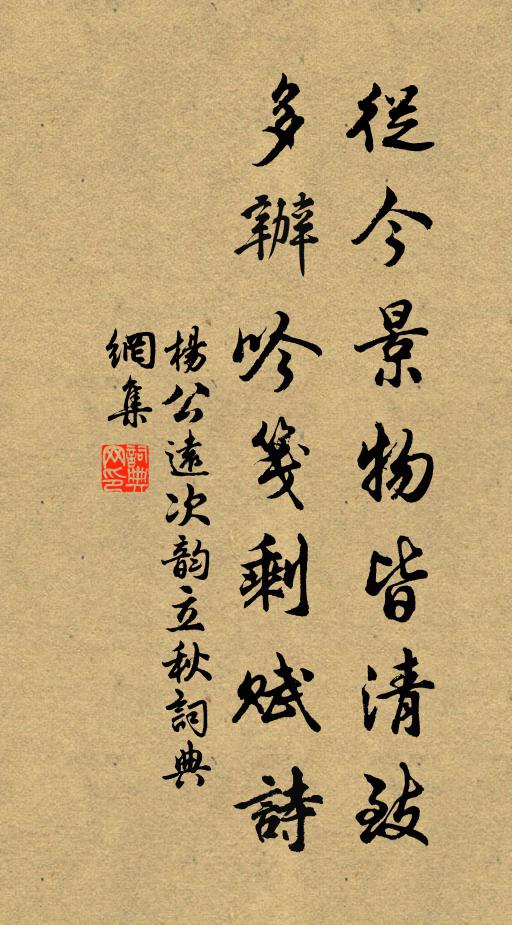 從今景物皆清致
多辦吟箋剩賦詩
楊公遠次韵立秋詞典
網集
詞典
网印